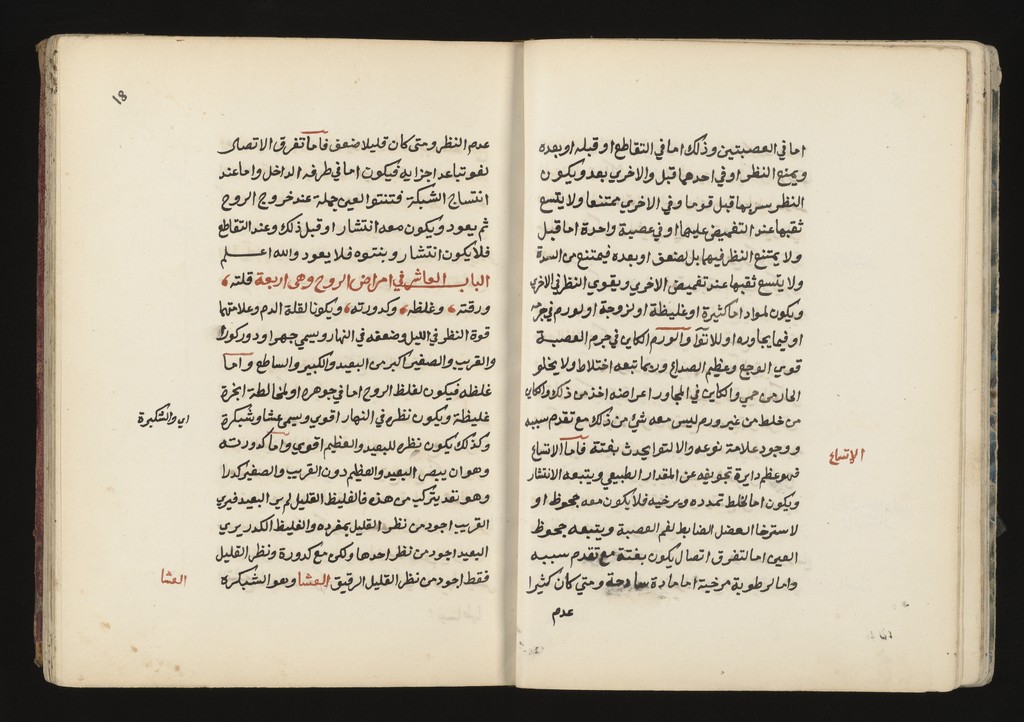 اما في العصبتين وذلك اما في التقاطع او قبله او بعده
ويمنع النظر او في احدهما قبل والاخري بعد ويكون
النظر بسر بها قبل قوما وفي الاخري ممتنعا ولا يتسع
ثقبها عند التغميض عليها او في عصبة واحدة اما قبل
ولا يمتنع النظر فيها بل لضعف او بعده فيمتنع من السدة
ولا يتسع ثقبها عند تغميض الاخري ويقوي النظر في الاخري
ويكون لمواد اما كثيرة او غليظة او لزوجة او لورم في جرمه
او فيما يجاوره او للاتوا والورم الكاين في جرم العصبة
قوي الوجع وعظم الصداع وربما تبعه اختلاط ولا يخلو
الحار من حمي والكاين في المجاور اعراضه اخف من ذلك والكاين
من خلط من غير ورم ليس معه شي من ذلك مع تقدم سببه
ووجود علامة نوعه والالتوا يحدث بغتة فاما الاتساع
فهو عظم دايرة تجويفه عن المقدار الطبيعي ويتبعه الانتشار
ويكون اما لخلط تمدده ويرخيه فلا يكون معه جحوظ او
لاسترخا العضل الضابط لفم العصبة ويتبعه جحوظ
العين اما لتفرق اتصال يكون بغتة مع تقدم سببه
واما لرطوبة مرخية اما مادة ساذجة ومتي كان كثيرا
عدم
الاتساع
18
عدم النظر ومتي كان قليلا ضعف فاما تفرق الاتصال
لفو تباعد اجزايه فيكون اما في طرفه الداخل واما عند
انتساج الشبكة فتنتو العين جملة عند خروج الروح
ثم يعود ويكون معه انتشار او قبل ذلك وعند التقاطع
فلا يكون انتشار وبنتوه فلا يعود والله اعلم
الباب العاشر في امراض الروح وهي اربعة قلته
ورقته، وغلظه، وكدورته، ويكونا لقلة الدم وعلامتها
قوة النظر في الليل وضعفه في النهار ويسمي جهرا ودوركورا
والقريب والصغير اكبر من البعيد والكبير والساطع واما
غلظه فيكون لغلظ الروح اما في جوهره او لمخالطة ابخرة
غليظة ويكون نظره في النهار اقوي ويسمي عشا وشبكرة
وكذلك يكون نظره للبعيد والعظيم اقوي واما كدورته
وهو ان يبصر البعيد والعظم دون القريب والصغير كدرا
وهو نقد يتركب من هذه فالغليظ القليل لم ير البعيد فيري
القريب اجود من نظر القليل بمفرده والغليظ الكدر يري
البعيد اجود من نظر احدها ولكن مع كدورة ونظر القليل
فقط اجود من نظر القليل الرقيق العشا وهو الشبكرة
اي والشبكرة
العشا